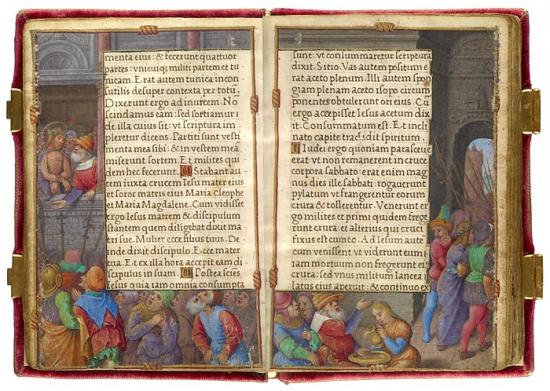 menta eius: & fecerunt quattuor
partes: vnicuiq; militi partem et tu
nicam. Erat autem tunica incon
sutilis desuper contexta per totū.
Dixerunt ergo ad inuicem. No
scindamus eam: sed sortiamur
de illa cuius sit: vt scriptura im
pleretur dicens. Partiti sunt vesti
menta mea sibi: & in vestem mea
miserunt sortem. Et milites qui
dem hec fecerunt. Stabant au
tem iuxta crucem Iesu mater eius
et soror matris eius Maria Cleophe
et Maria Magdalene. Cum vidisset
ergo Iesus matrem & discipulum
stantem quem diligebat dixit ma
tri sue. Mulier ecce filius tuus. De
inde dixit discipulo. Ecce mater
tua. Et ex illa hora accepit eam di
scipulus in suam. Postea sciēs
Iesus quia iam omnia consumpta
sunt: vt consummaretur scriptura
dixit. Sitio. Vas autem positum e
rat aceto plenum. Illi autem spon
giam plenam aceto isopo circum
ponentes obtulerunt ori eius. Cū
ergo accepisset Iesus acetum dix
it. Consummatum est. Et incli
nato capite tradidit spiritum.
Iudei ergo quoniam parasceue
erat vt non remanerent in cruce
corpora sabbato: erat enim mag
nus dies ille sabbati: rogauerunt
pylatum vt frangerentur eorum
crura & tollerentur. Venerunt er
go milites et primi quidem fregē
runt crura: et alterius qui cruci
fixus est cum eo. Ad Iesum aute
cum venissent vt viderunt eum
iam mortuum non fregerunt ei
crura: sed vnus militum lancea
latus eius aperuit: & continuo ex